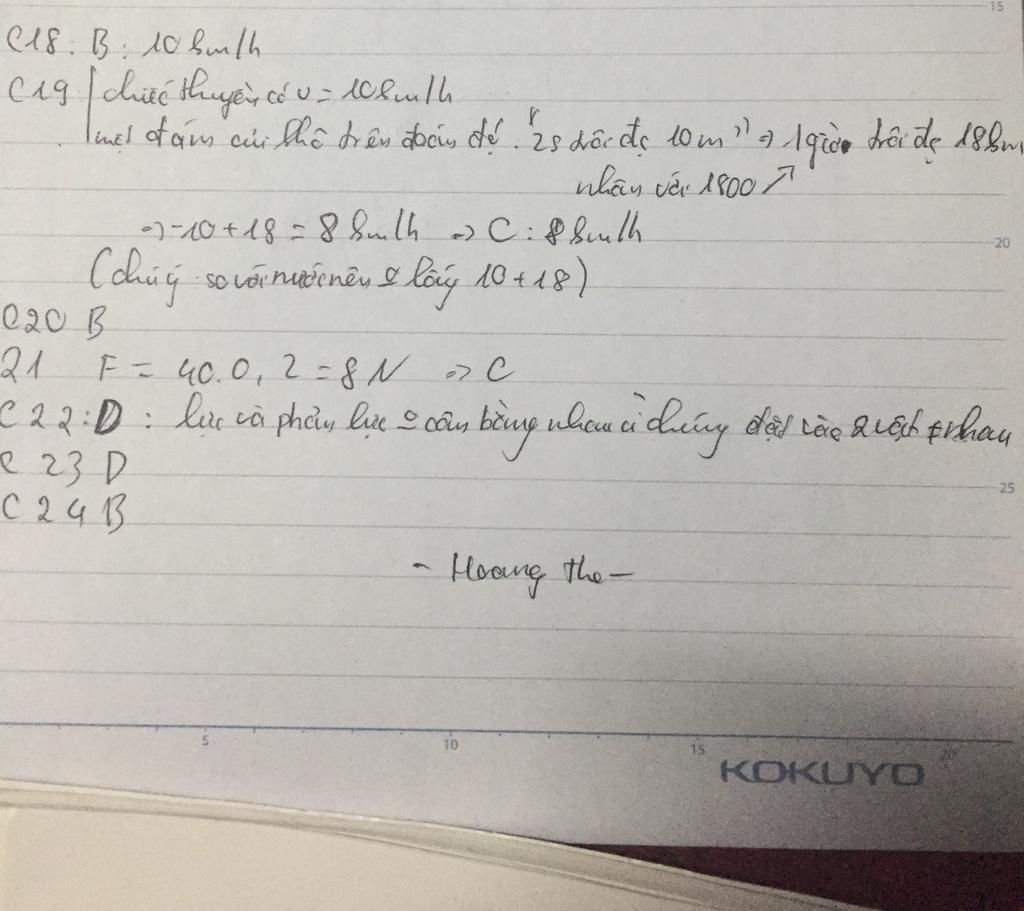 15
C18: B: 10 km/h
C19 chiếc thuyền có v = 10 km/h
một đám củi khô trên đoán đó. "2s trôi đc 10 m" => 1 giờ trôi đc 18 km
nhân với 1800
=> -10 + 18 = 8 km/h => C: 8 km/h
20
(chú ý so với nước nên lấy 10 + 18)
C20 B
21 F = 40.0,2 = 8 N => C
C22: D: lực và phản lực cân bằng nhau vì chúng đặt vào 2 vật ≠ nhau
C 23 D
25
C 24 B
- Hoang Tho -
5 10 15 20
KOKUYO